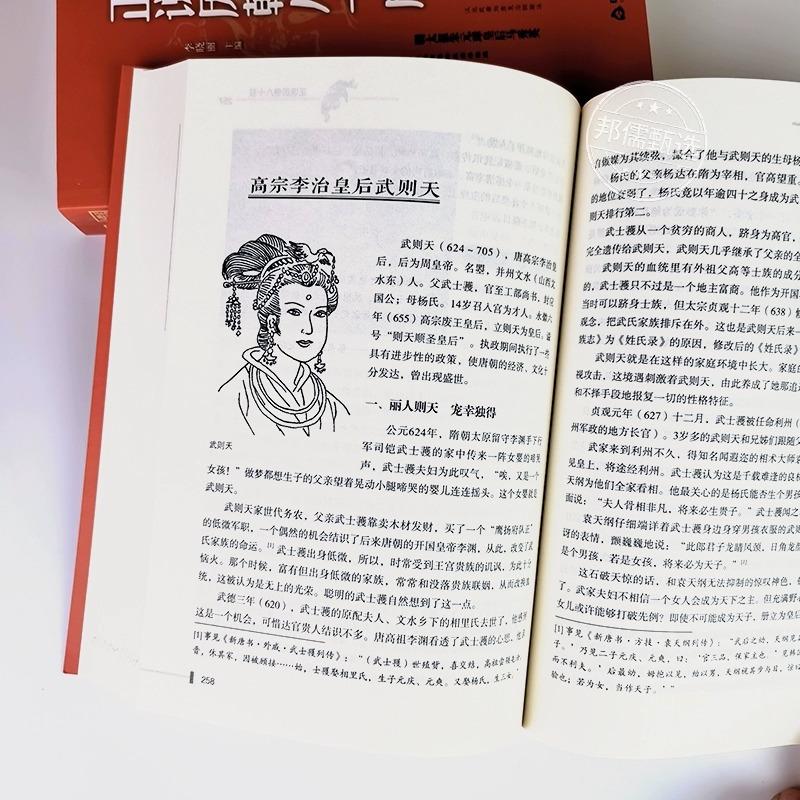 李晓丽 主编
邦儒甄选
高宗李治皇后武则天
武则天（624～705），唐高宗李治皇
后，后为周皇帝。名曌，并州文水（山西文
水东）人。父武士彟，官至工部尚书，封应
国公；母杨氏。14岁召入宫为才人。永徽六
年（655）高宗废王皇后，立则天为皇后。谥
号“则天顺圣皇后”。执政期间执行了一些
具有进步性的政策，使唐朝的经济、文化十
分发达，曾出现盛世。
武则天
一、丽人则天 宠幸独得
公元624年，隋朝太原留守李渊手下行
军司铠武士彟的家中传来一阵女婴的啼哭
声，武士彟夫妇为此叹气，“唉，又是一个
女孩！”做梦都想生子的父亲望着晃动小腿啼哭的婴儿连连摇头。这个女婴就是
武则天。
武则天家世代务农，父亲武士彟靠卖木材发财，买了一个“鹰扬府队正”
的低微军职，一个偶然的机会结识了后来唐朝的开国皇帝李渊，从此，改变了武
氏家族的命运。[1]武士彟出身低微，所以，时常受到王宫贵族的讥讽，为此十分
恼火。那个时候，富有但出身低微的家族，常常和没落贵族联姻，从而改换血
统，这被认为是无上的光荣。聪明的武士彟自然想到了这一点。
武德三年（620），武士彟的原配夫人、文水乡下的相里氏去世了，他感到
这是一个机会，可惜达官贵人结识不多。唐高祖李渊看透了武士彟的心思，也亲
[1]事见《新唐书·外戚·武士彟列传》：“（武士彟）世殖赀，喜交结，高祖尝领屯汾
晋，休其家，因被顾接……始，士彟娶相里氏，生子元庆、元爽。又娶杨氏，生三女：
258
自做媒为其续弦，撮合了他与武则天的生母杨
杨氏的父亲杨达在隋为宰相，官高望重。
的地位衰弱了，杨氏竟以年逾四十之身成为武
则天排行第二。
武士彟从一个贫穷的商人，跻身为高官，
完全遗传给武则天，武则天几乎继承了父亲的全
武则天的血统里有外祖父高等士族的成分
的，武士彟只不过是一个地主富商。他作为开国
当时可以跻身士族，但太宗贞观十二年（638）修
观念，把武氏家族排斥在外。这也是武则天后来一
族志》为《姓氏录》的原因，修改后的《姓氏录》
武则天就是在这样的家庭环境中长大。家庭的
视攻击，这境遇刺激着武则天，由此养成了她那追
和不择手段地报复一切的性格特征。
贞观元年（627）十二月，武士彟被任命利州（
州军政的地方长官）。3岁多的武则天和兄姊们跟随父
武家来到利州不久，得知名闻遐迩的相术大师袁
见皇上，将途经利州。武士彟认为这是千载难逢的良机
天纲为他们全家看相。他最关心的是杨氏能否生个男孩
面说：“夫人骨相非凡，将来必生贵子。”武士彟闻之
袁天纲仔细端详着武士彟身边身穿男孩衣服的武则
讶的表情，颤巍巍地说：“此郎君子龙睛凤颈，日角龙颜
是个男孩，若是女孩，将来必为天子。”[2]
这石破天惊的话，和袁天纲无法抑制的惊叹神色，
了。武家夫妇不相信一个女人会成为天下之主。但充满野心
女儿或许能够打破先例？即使不可能成为天子，册立为皇后
[1]事见《新唐书·方技·袁天纲列传》：“武后之幼，天纲见
子。’乃见二子元庆、元爽，曰：‘官三品，保家主也。’见韩
而不利夫。’后最幼，姆抱以见，绐以男，天纲视其步与目，惊曰
验也；若为女，当作天子。’”